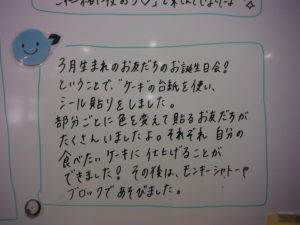 3月生まれのお友だちのお誕生日会!
ということで、ケーキの台紙を使い、
シール貼りをしました。
部分ごとに色を変えて貼るお友だちが
たくさんいましたよ。それぞれ自分の
食べたいケーキに仕上げることが
できました! その後は、モンキーシャトーや
ブロックであそびました。